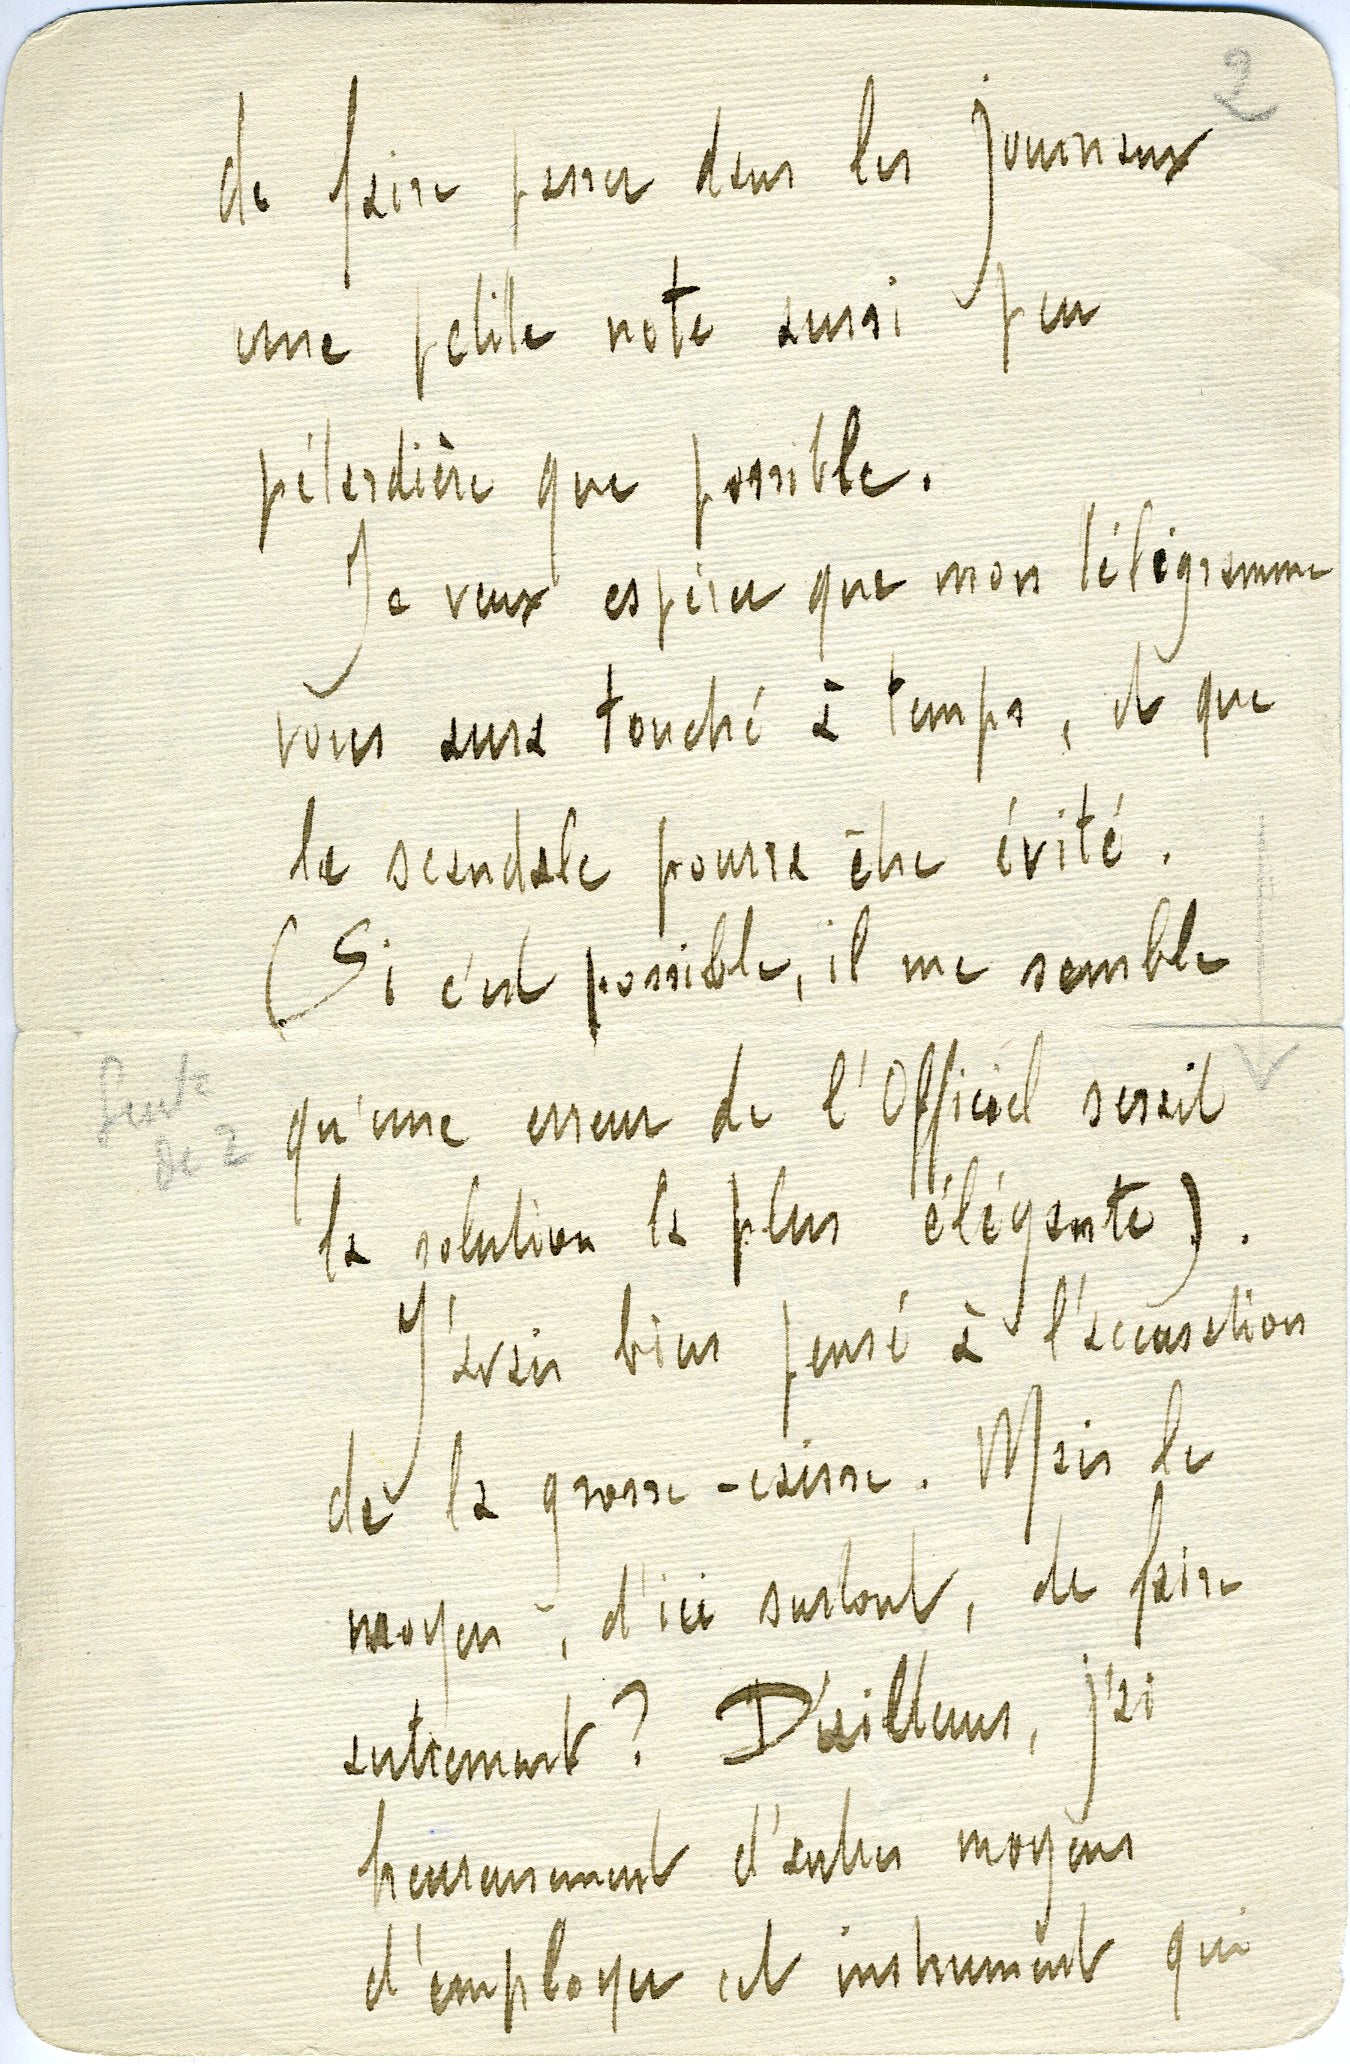 2
de faire passer dans les journaux
une petite note aussi peu
pétardière que possible.
Je veux espérer que mon télégramme
vous aura touché à temps, et que
le scandale pourra être évité.
(Si c'est possible, il me semble
qu'une erreur de l'Officiel serait
la solution la plus élégante).
J'avais bien pensé à l'accusation
de la grosse-caisse. Mais le
moyen, d'ici surtout, de faire
autrement? D'ailleurs, j'ai
heureusement d'autres moyens
d'employer cet instrument qui
Suite
de 2